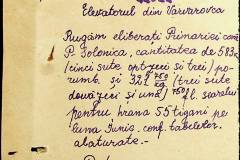 Elevatorul din Varvarovca
Rugăm eliberați Primăriei com.
P. Solonica, cantitatea de 583
/cinci sute optzeci și trei/ po-
rumb, și 321 750/kg /trei sute
douăzeci și una/ 750/kg fl. soarelui
pentru hrana 55 țigani pe
luna Iunie conf. tabelelor
alăturate.